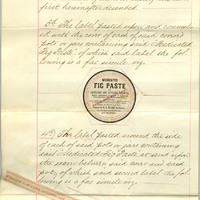 first hereinafter described
3rd. The label pasted upon and connected
with the cover of each of said covered
pots or jars containing said Medicated
Fig Paste of which said label the fol-
lowing is a fac simile viz:
MEDICATED
FIG PASTE
4th) The label pasted around the side
of each of said pots or jars containing
said Medicated Fig Paste at and upon
the zone between said cover and said
pot, of which said second label the fol-
lowing is a fac simile viz